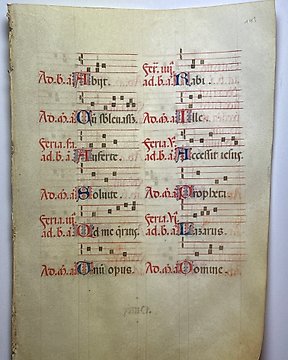 Ad. b. a Abijt.
Ad. m. a Cū sbleuass.
Feria.
ad. b. a Auferte.
Ad. m. a Soluite.
Feria. iij.
ad. b. a Qd me q̄ris.
Ad. m. a Unū opus.
Fer. iiij.
ad. b. a Rabi.
Ad. m. a Ille.
Feria. v.
ad. b. a Accessit iesus.
Ad. m. a Propheta.
Feria. vi.
ad. b. a Lazarus.
Ad. m. a Domine.